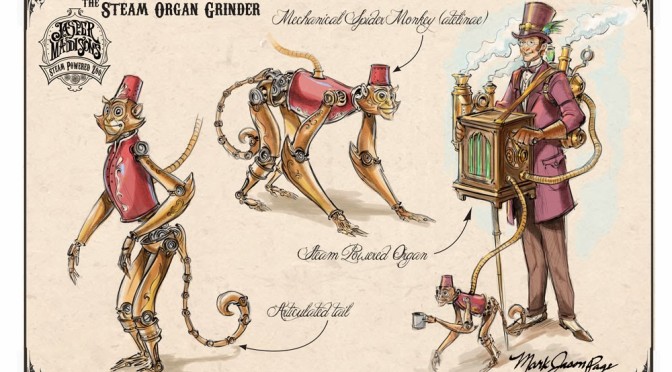 THE STEAM ORGAN GRINDER
JASPER
MADDISON'S
STEAM POWERED ZOO
Mechanical Spider Monkey (atelinae)
Steam Powered Organ
Articulated tail
Mark Jason Page